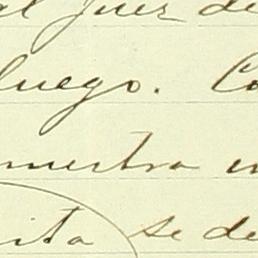 al Juez de
luego. Co
muestra en
ita se de